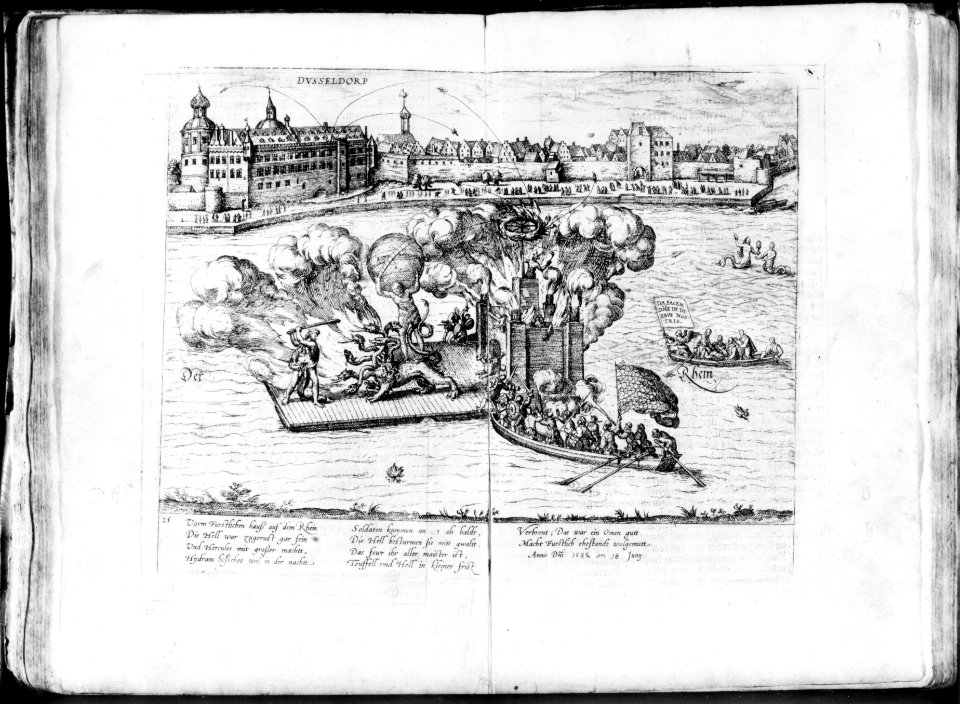 DVSSELDORP
DA PACEM
DNE IN DI
EBVS NOS
TRIS.
Der
Rhein
25
Vorm Furstlichen hauß auf dem Rhein
Die Hell war zugerust gar fein
Vnd Hercules mit großer macht,
Hydram bestritet wol in der nacht.
Soldaten kummen an als balde,
Die Hell besturmen sie mitt gwalt
Das feur ihr aller maister ist,
Teuffell vnd Hell in kleiner frist
Verbrent, Das war ein Omen gutt
Macht Furstlich ehestandt wolgemutt.
Anno Dni 1585 am 18 Juny